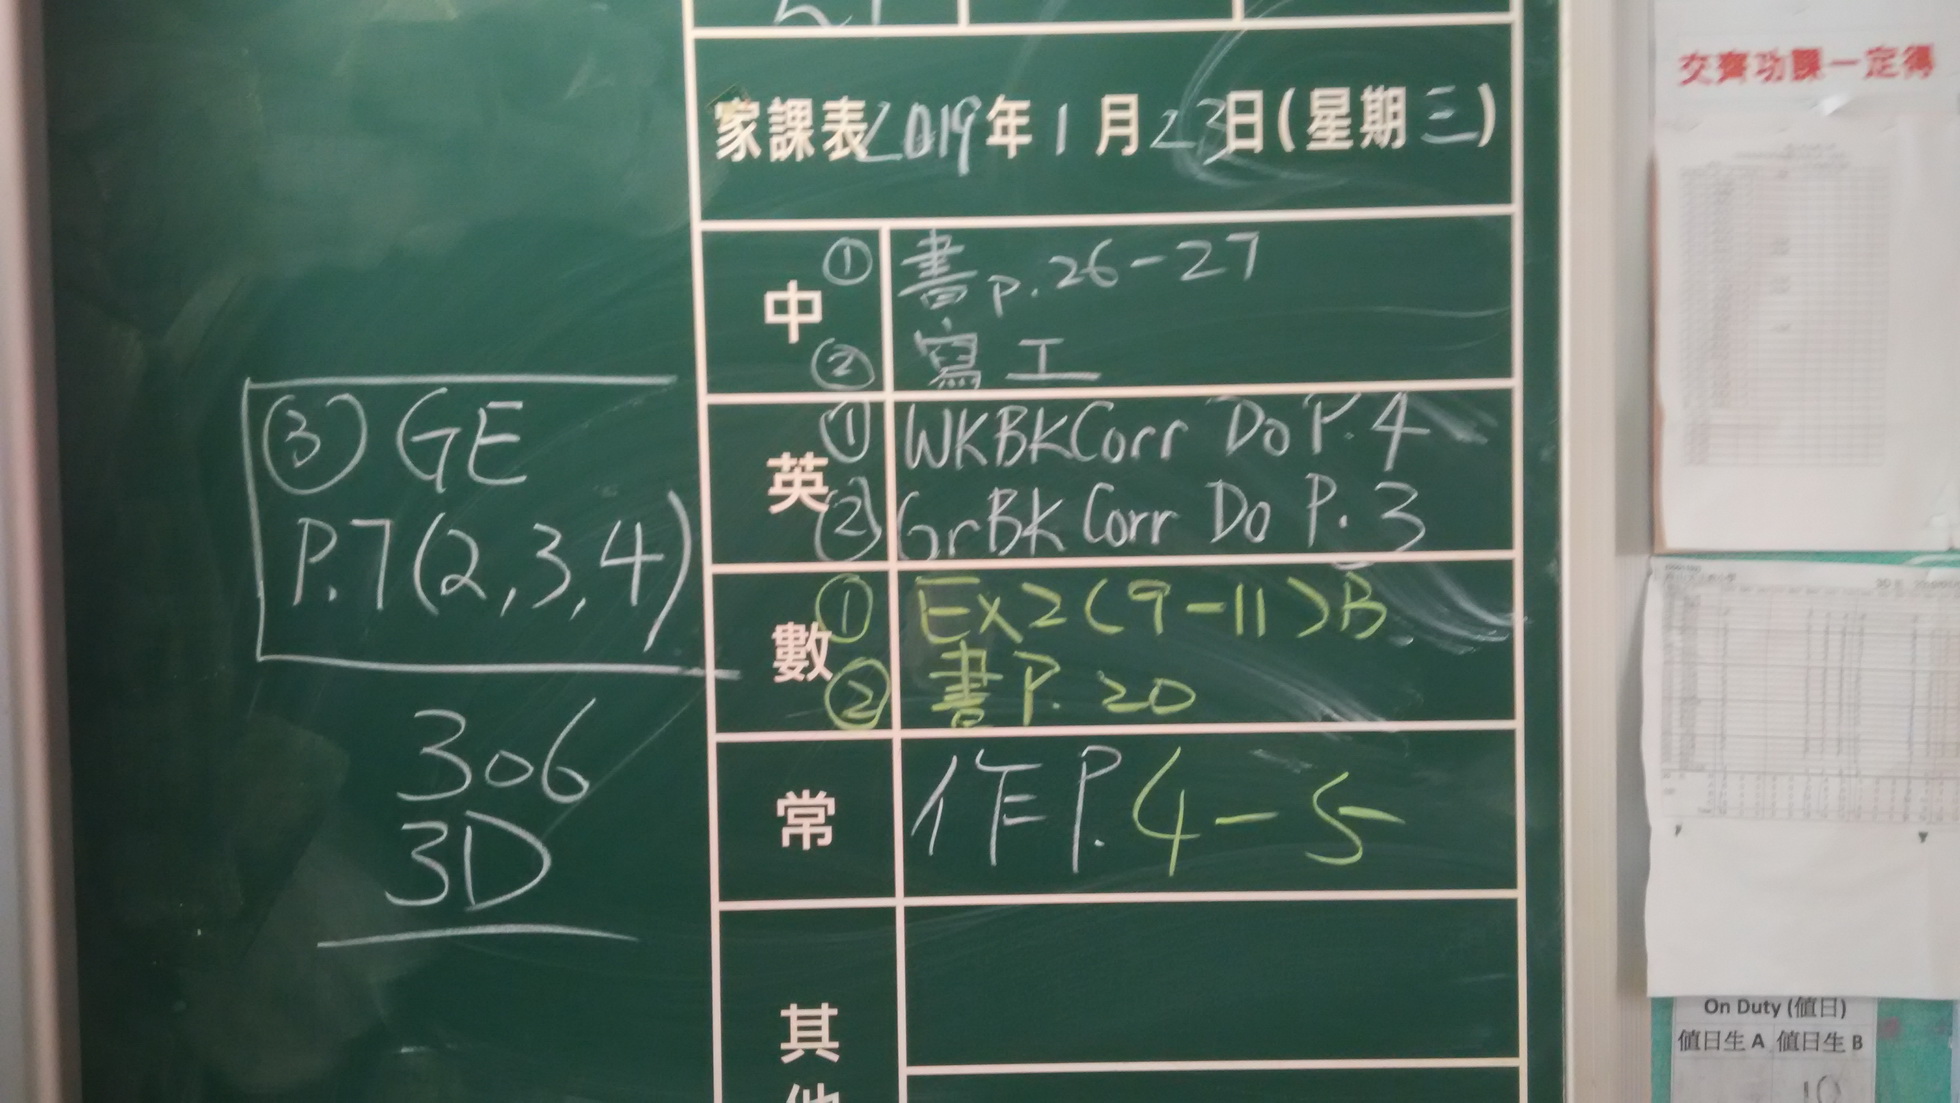 家課表2019年1月23日(星期三)
中
① 書p.26-27
② 寫工
英
① WKBKCorr Do P.4
② GrBK Corr Do P.3
③ GE
P.7(2,3,4)
數
① Ex2(9-11)B
② 書P.20
常
作P.4-5
306
3D
其他
交齊功課一定得
On Duty (值日)
值日生 A 值日生 B
10